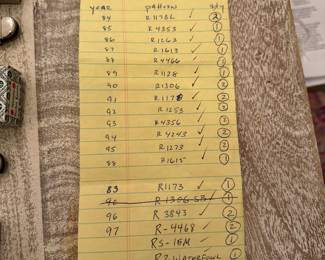 YEAR PATTERN qty
84 R1178L ✓ 2
85 R4353 ✓ 1
86 R1263 ✓ 1
87 R1613 ✓ 1
88 R4466 ✓ 1
89 R1128 ✓ 1
90 R1306 ✓
91 R117 ✓ 2
92 R1253 ✓
93 R4356 ✓ 2
94 R4243 ✓ 2
95 R1273 ✓ 2
88 R1615 ✓ 1
83 R1173 ✓ 1
90 R1306-SB ✓ 1
96 R3843 ✓ 2
97 R-4468 ✓ 2
RS-1EM ✓
R2 WATERFOWL